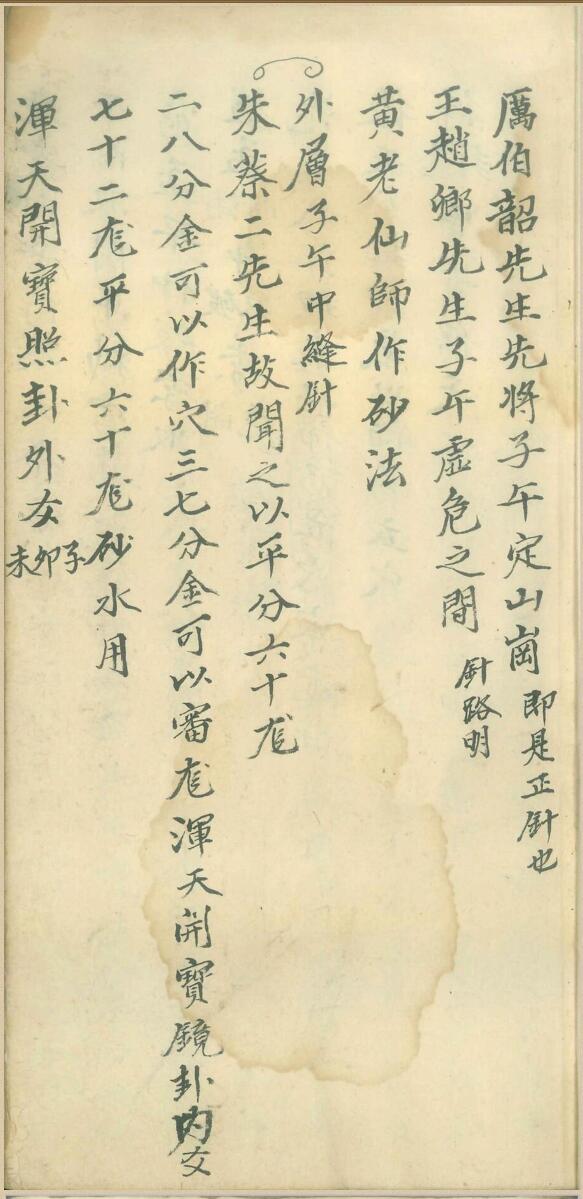 厲伯韶先生先將子午定山崗 即是正針也
王趙鄉先生子午虛危之間 針路明
黃老仙師作砂法
外層子午中縫針
朱蔡二先生故聞之以平分六十尨
二八分金可以作穴三七分金可以審尨渾天開寶鏡卦內爻
七十二尨平分六十尨砂水用
渾天開寶照卦外爻 子卯未